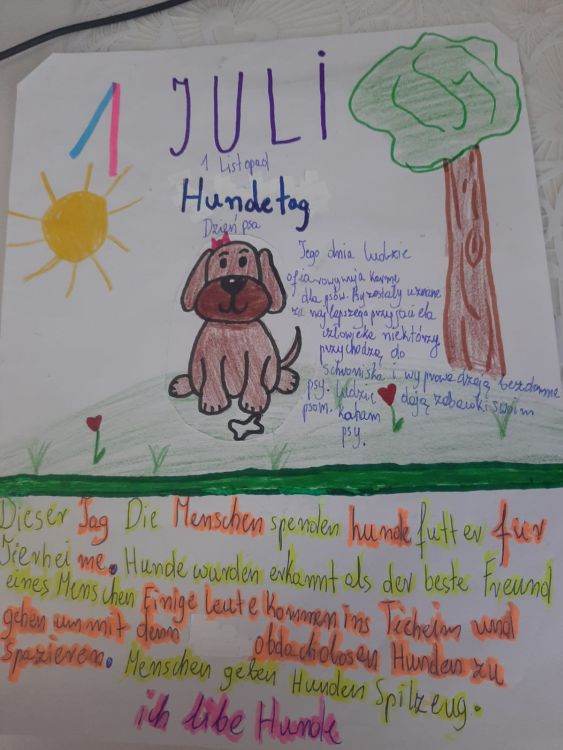 1 JULI
1 Listopad
Hundetag
Dzień psa
Tego dnia ludzie
ofiarowywują karmę
dla psów. Psy zostały uznane
za najlepszego przyjaciela
człowieka niektórzy
przychodzą do
schroniska i wyprowadzają bezdomne
psy. Ludzie dają zabawki swoim
psom. Kaham
psy.
Dieser Tag Die Menschen spenden hunde futter für
Tierheime. Hunde wurden erkannt als der beste Freund
eines Menschen Einige leute kommen ins Tieheim und
gehen um mit denn obdacholosen Hunden zu
spazieren. Menschen geben Hunden Spilzeug.
ich libe Hunde